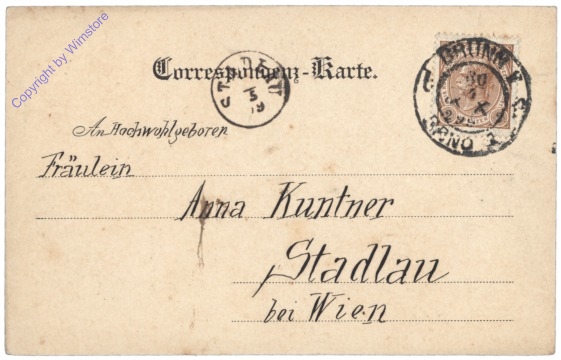 Copyright by Wimstore
Correspondenz-Karte.
STADLAU
BRÜNN
BRNO
An Hochwohlgeboren
Fräulein
Anna Kuntner
Stadlau
bei Wien